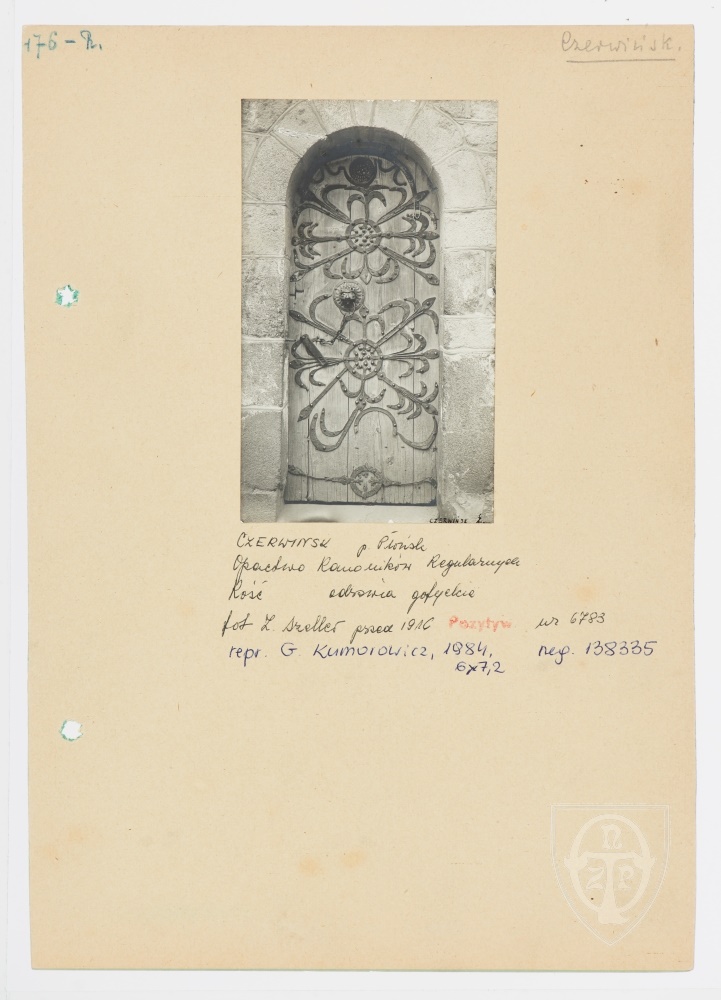 176 - R.
Czerwińsk.
CZERWINSK
CZERWIŃSK p. Płońsk
Opactwo Kanoników Regularnych
Kość odrzwia gotyckie
fot Z. Szeller przed 1916 Pozytyw nr 6783
repr. G. Kumorowicz, 1984, neg. 138335
6x7,2
TNOZP